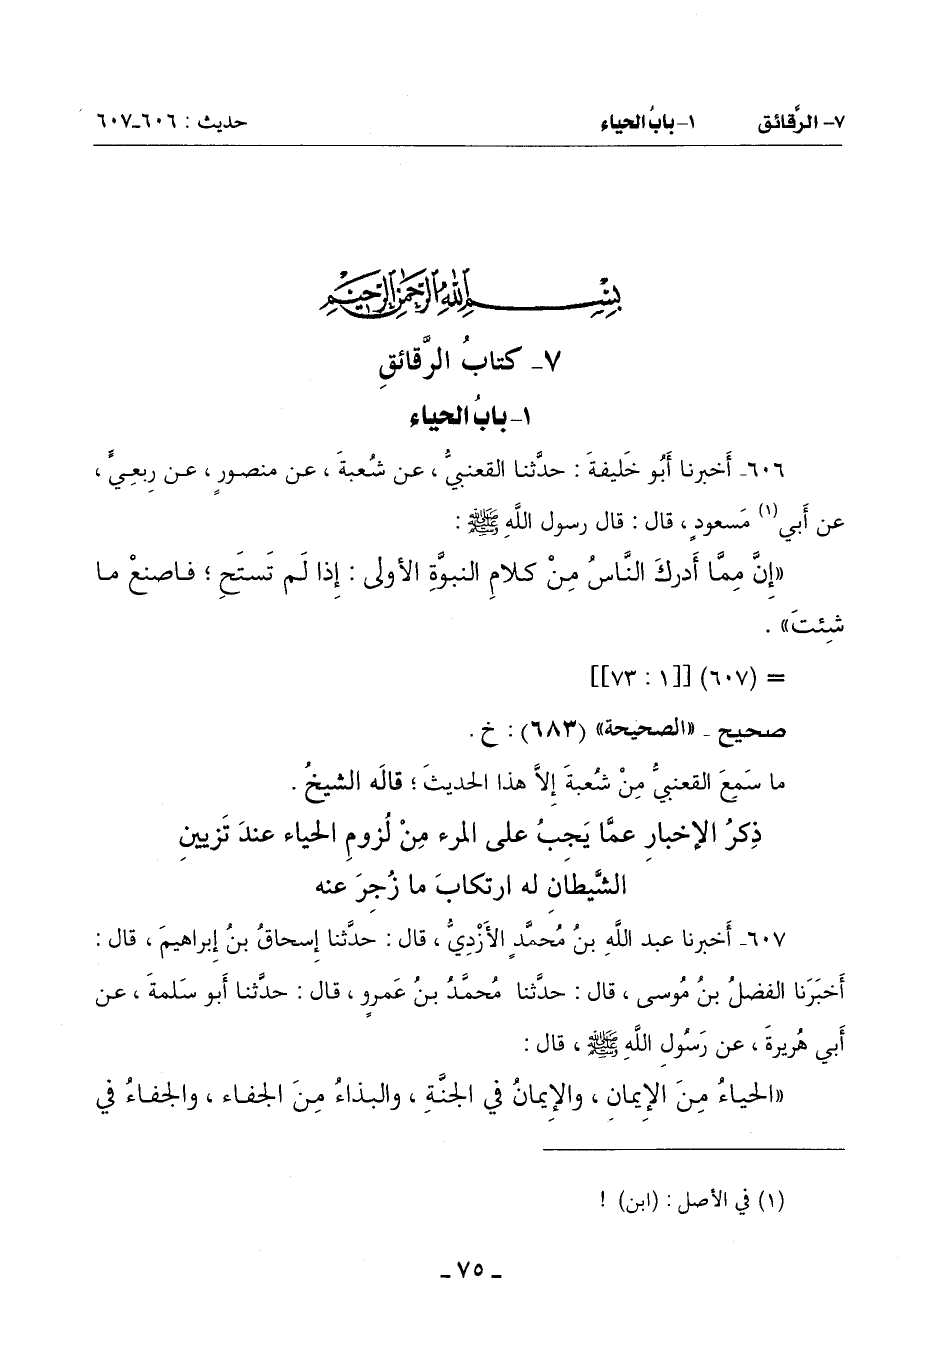 ٧- الرَّقائق ١- بابُ الحياء حديث : ٦٠٦-٦٠٧
بِسْمِ اللَّهِ الرَّحْمَنِ الرَّحِيمِ
٧- كتابُ الرَّقائقِ
١- بابُ الحياء
٦٠٦- أَخبرنا أَبُو خَليفةَ : حدَّثنا القعنبيُّ ، عن شُعبةَ ، عن منصورٍ ، عن رِبعِيٍّ ،
عن أَبي(١) مَسعودٍ ، قال : قال رسول اللَّهِ ﷺ :
«إنَّ مِمَّا أَدركَ النَّاسُ مِنْ كلامِ النبوَّةِ الأولى : إذا لَم تَستَحِ ؛ فاصنعْ ما
شِئتَ» .
= (٦٠٧) [[١ : ٧٣]]
صحيح ـ «الصحيحة» (٦٨٣) : خ .
ما سَمِعَ القعنبيُّ مِنْ شُعبةَ إلاَّ هذا الحديثَ ؛ قالَه الشيخُ .
ذِكرُ الإخبارِ عمَّا يَجِبُ على المرء مِنْ لُزومِ الحياء عندَ تَزيينِ
الشَّيطانِ له ارتكابَ ما زُجِرَ عنه
٦٠٧- أَخبرنا عبد اللَّهِ بنُ مُحمَّدٍ الأَزْدِيُّ ، قال : حدَّثنا إسحاقُ بنُ إبراهيمَ ، قال :
أَخبَرَنا الفضلُ بنُ مُوسى ، قال : حدَّثنا مُحمَّدُ بنُ عَمرو ، قال : حدَّثنا أَبو سَلمةَ ، عن
أَبي هُريرةَ ، عن رَسُولِ اللَّهِ ﷺ ، قال :
«الحياءُ مِنَ الإيمانِ ، والإيمانُ في الجنَّةِ ، والبذاءُ مِنَ الجفاء ، والجفاءُ في
(١) في الأصل : (ابن) !
ـ ٧٥ ـ